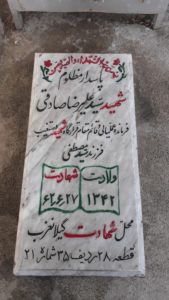 پاسدار مظلوم
شهید سید علیرضا صادقی
فرمانده عملیاتی قائم مقام قرارگاه شهید
فرزند سید مصطفی
ولادت شهادت
۱۳۴۲ ۶۲٫۶٫۲۷
محل شهادت گیلانغرب
قطعه ۲۸ ردیف ۳۵ شماره ۲۱